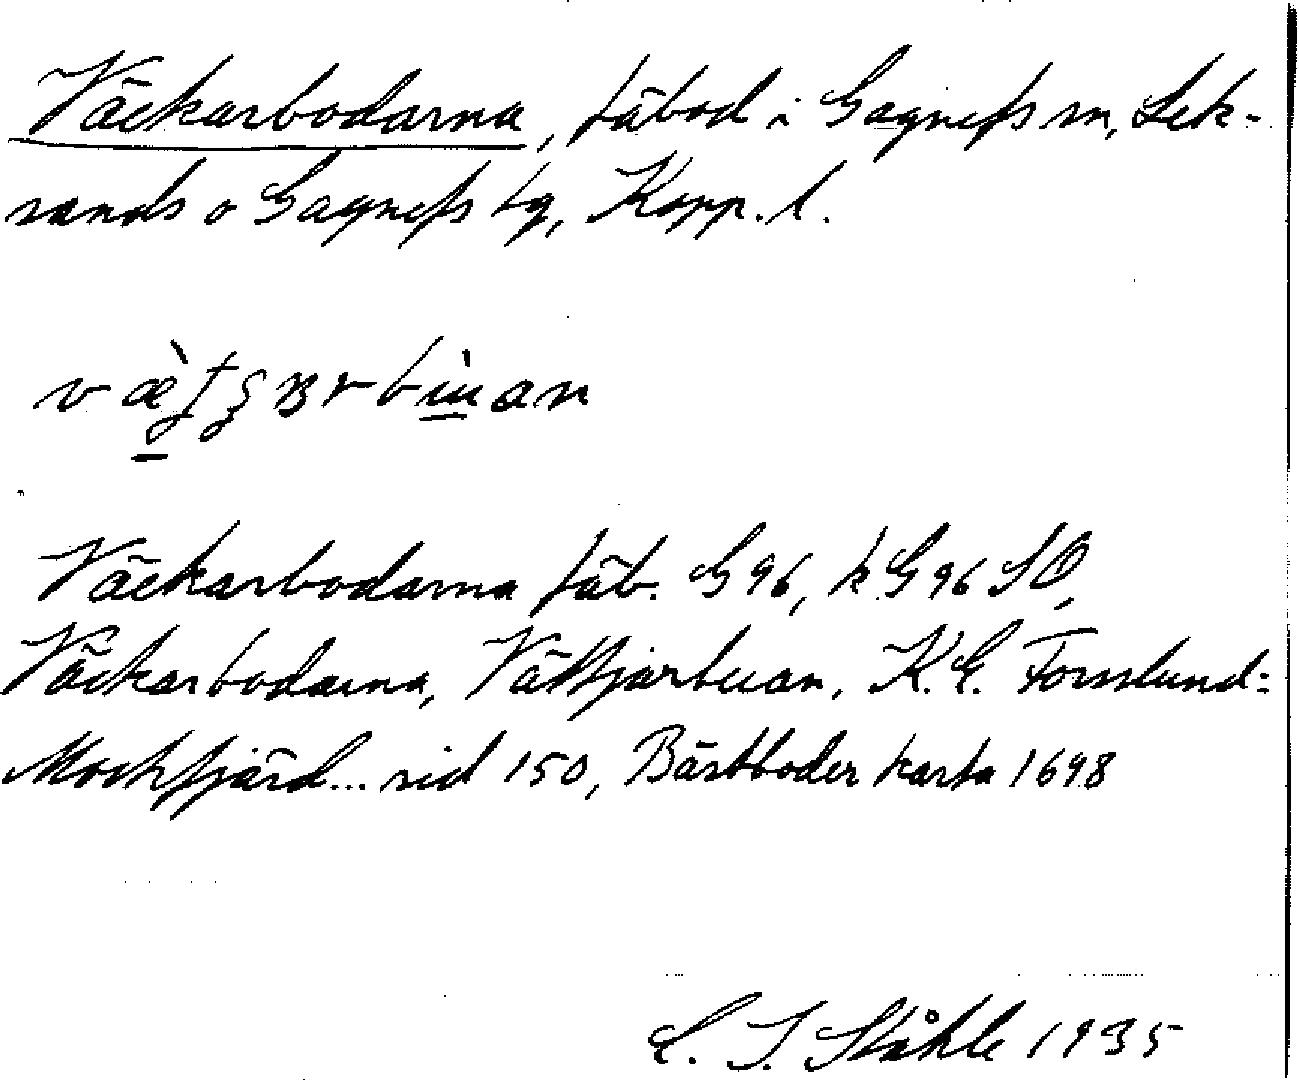 Väckarbodarna, fäbod i Gagnefs sn, Lek-
sands o Gagnefs tg, Kopp. l.
Väckarbodarna fäb. G 96, k G 96 SO,
Väckarbodarna, Vättjärbuan, K.E. Forslund:
Mockfjärd... sid 150, Bästboder karta 1698
C. I. Ståhle 1935